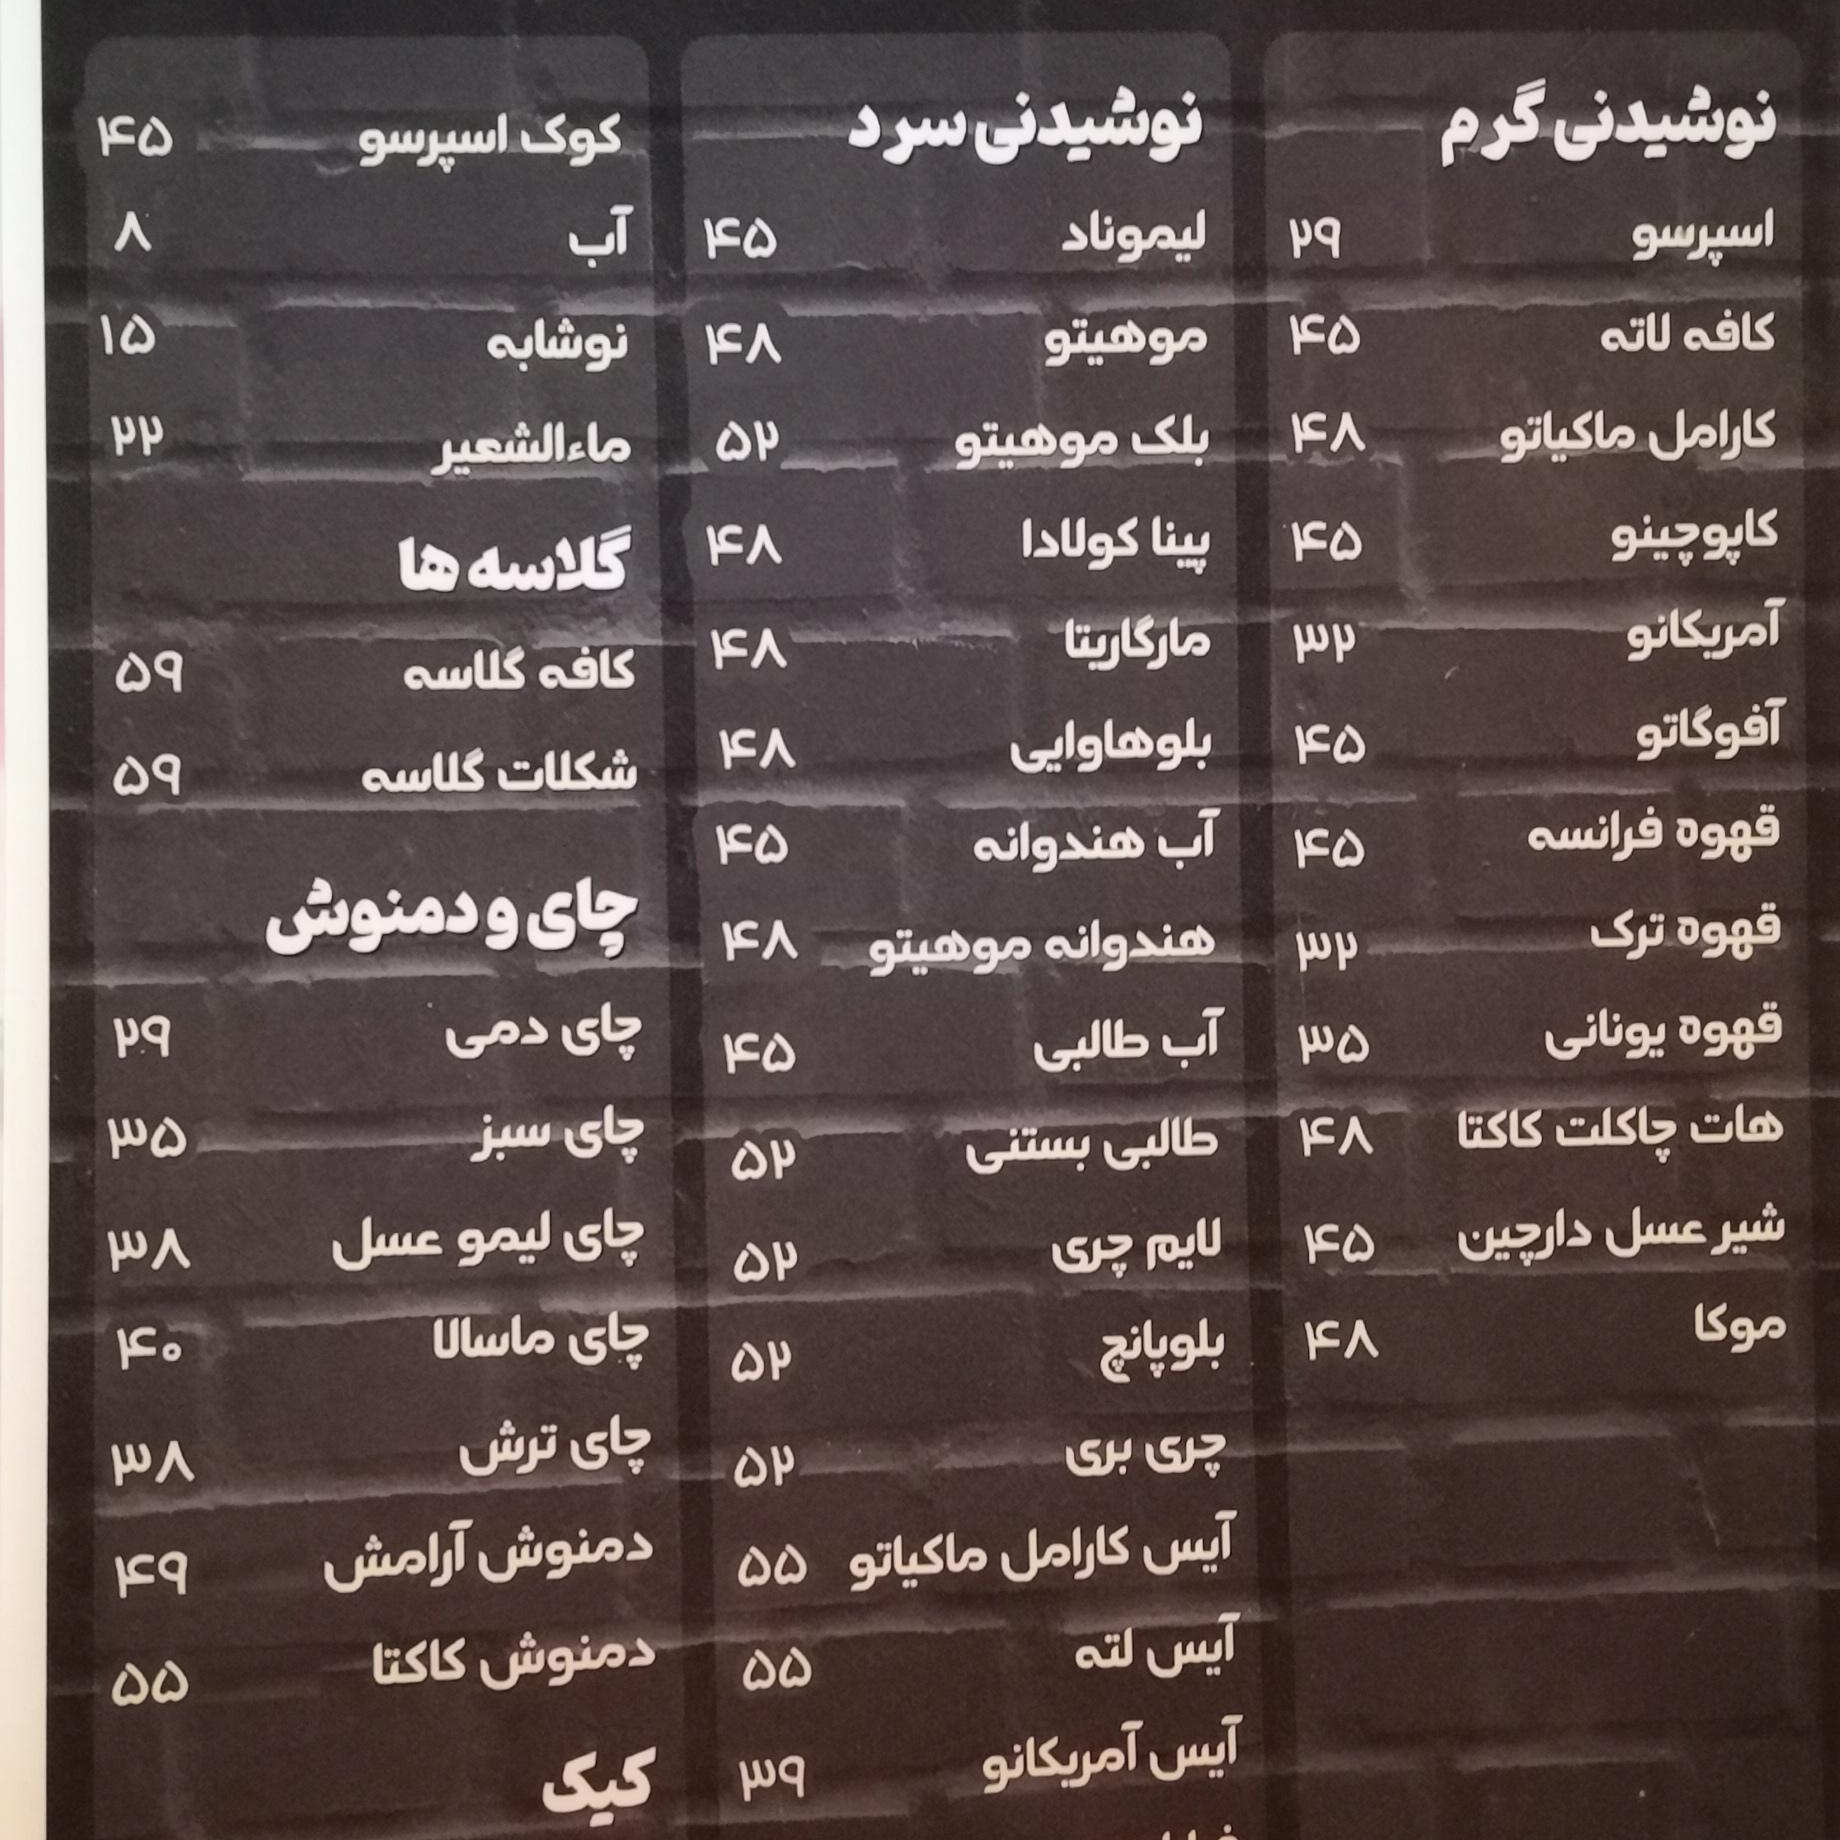 نوشیدنی گرم
اسپرسو ۲۹
کافه لاته ۴۵
کارامل ماکیاتو ۴۸
کاپوچینو ۴۵
آمریکانو ۳۲
آفوگاتو ۴۵
قهوه فرانسه ۴۵
قهوه ترک ۳۲
قهوه یونانی ۳۵
هات چاکلت کاکتا ۴۸
شیر عسل دارچین ۴۵
موکا ۴۸
نوشیدنی سرد
لیموناد ۴۵
موهیتو ۴۸
بلک موهیتو ۵۲
پینا کولادا ۴۸
مارگاریتا ۴۸
بلوهاوایی ۴۸
آب هندوانه ۴۵
هندوانه موهیتو ۴۸
آب طالبی ۴۵
طالبی بستنی ۵۲
لایم چری ۵۲
بلوپانچ ۵۲
چری بری ۵۲
آیس کارامل ماکیاتو ۵۵
آیس لته ۵۵
آیس آمریکانو ۳۹
کوک اسپرسو ۴۵
آب ۸
نوشابه ۱۵
ماءالشعیر ۲۲
گلاسه ها
کافه گلاسه ۵۹
شکلات گلاسه ۵۹
چای و دمنوش
چای دمی ۲۹
چای سبز ۳۵
چای لیمو عسل ۳۸
چای ماسالا ۴۰
چای ترش ۳۸
دمنوش آرامش ۴۹
دمنوش کاکتا ۵۵
کیک